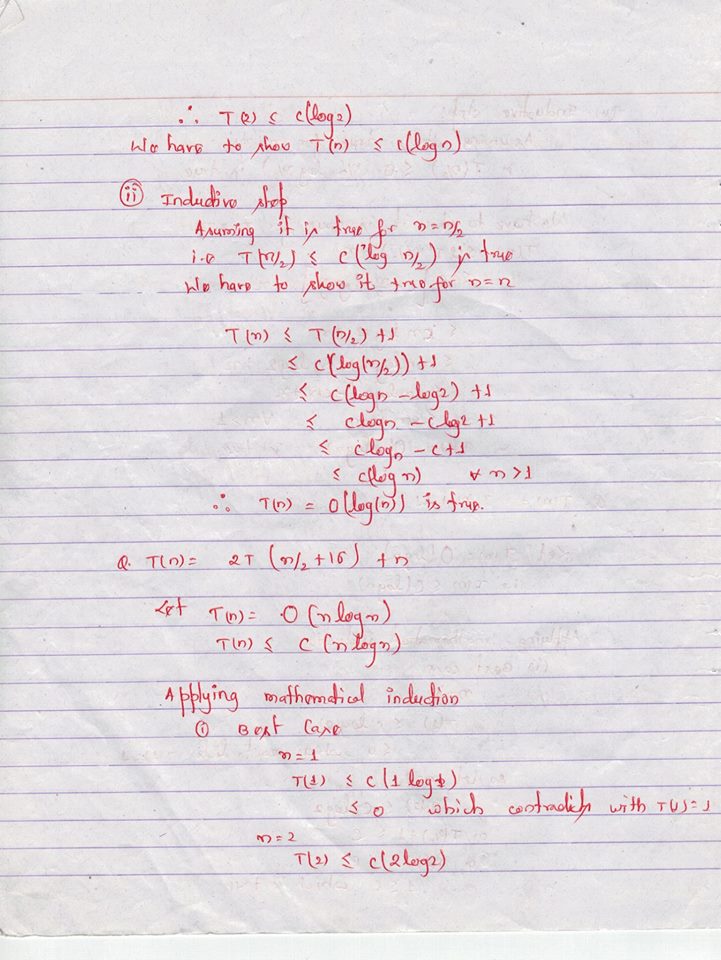 ∴ T(2) ≤ c(log2)
We have to show T(n) ≤ c(logn)
(ii) Inductive step
Assuming it is true for n=n/2
i.e T(n/2) ≤ c(log n/2) is true
We have to show it true for n=n
T(n) ≤ T(n/2) +1
≤ c(log(n/2)) +1
≤ c(logn - log2) +1
≤ clogn - clog2 +1
≤ clogn - c+1
≤ c(log n) ∀ n>1
∴ T(n) = O(log(n)) is true.
Q. T(n)= 2T (n/2+16) +n
Let T(n)= O(nlogn)
T(n) ≤ c (nlogn)
Applying mathematical induction
(i) Best Case
n=1
T(1) ≤ c(1 log1)
≤ 0 which contradicts with T(1)=1
n=2
T(2) ≤ c(2log2)